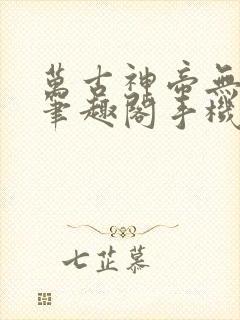 萬古神帝無
筆趣閣手機
七芷慕